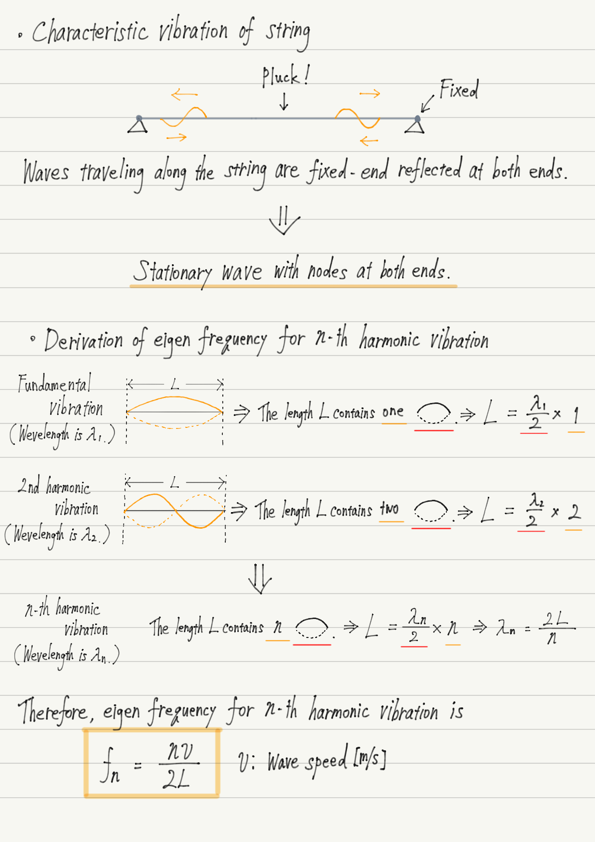 • Characteristic vibration of string
Pluck!
Fixed
Waves traveling along the string are fixed-end reflected at both ends.
⇓
Stationary wave with nodes at both ends.
• Derivation of eigen frequency for n-th harmonic vibration
Fundamental
vibration
(Wevelength is λ₁.)
L
⇒ The length L contains one . ⇒ L = λ₁/2 × 1
2nd harmonic
vibration
(Wevelength is λ₂.)
L
⇒ The length L contains two . ⇒ L = λ₂/2 × 2
⇓
n-th harmonic
vibration
(Wevelength is λn.)
The length L contains n . ⇒ L = λn/2 × n ⇒ λn = 2L/n
Therefore, eigen frequency for n-th harmonic vibration is
fn = nv/2L v: Wave speed [m/s]